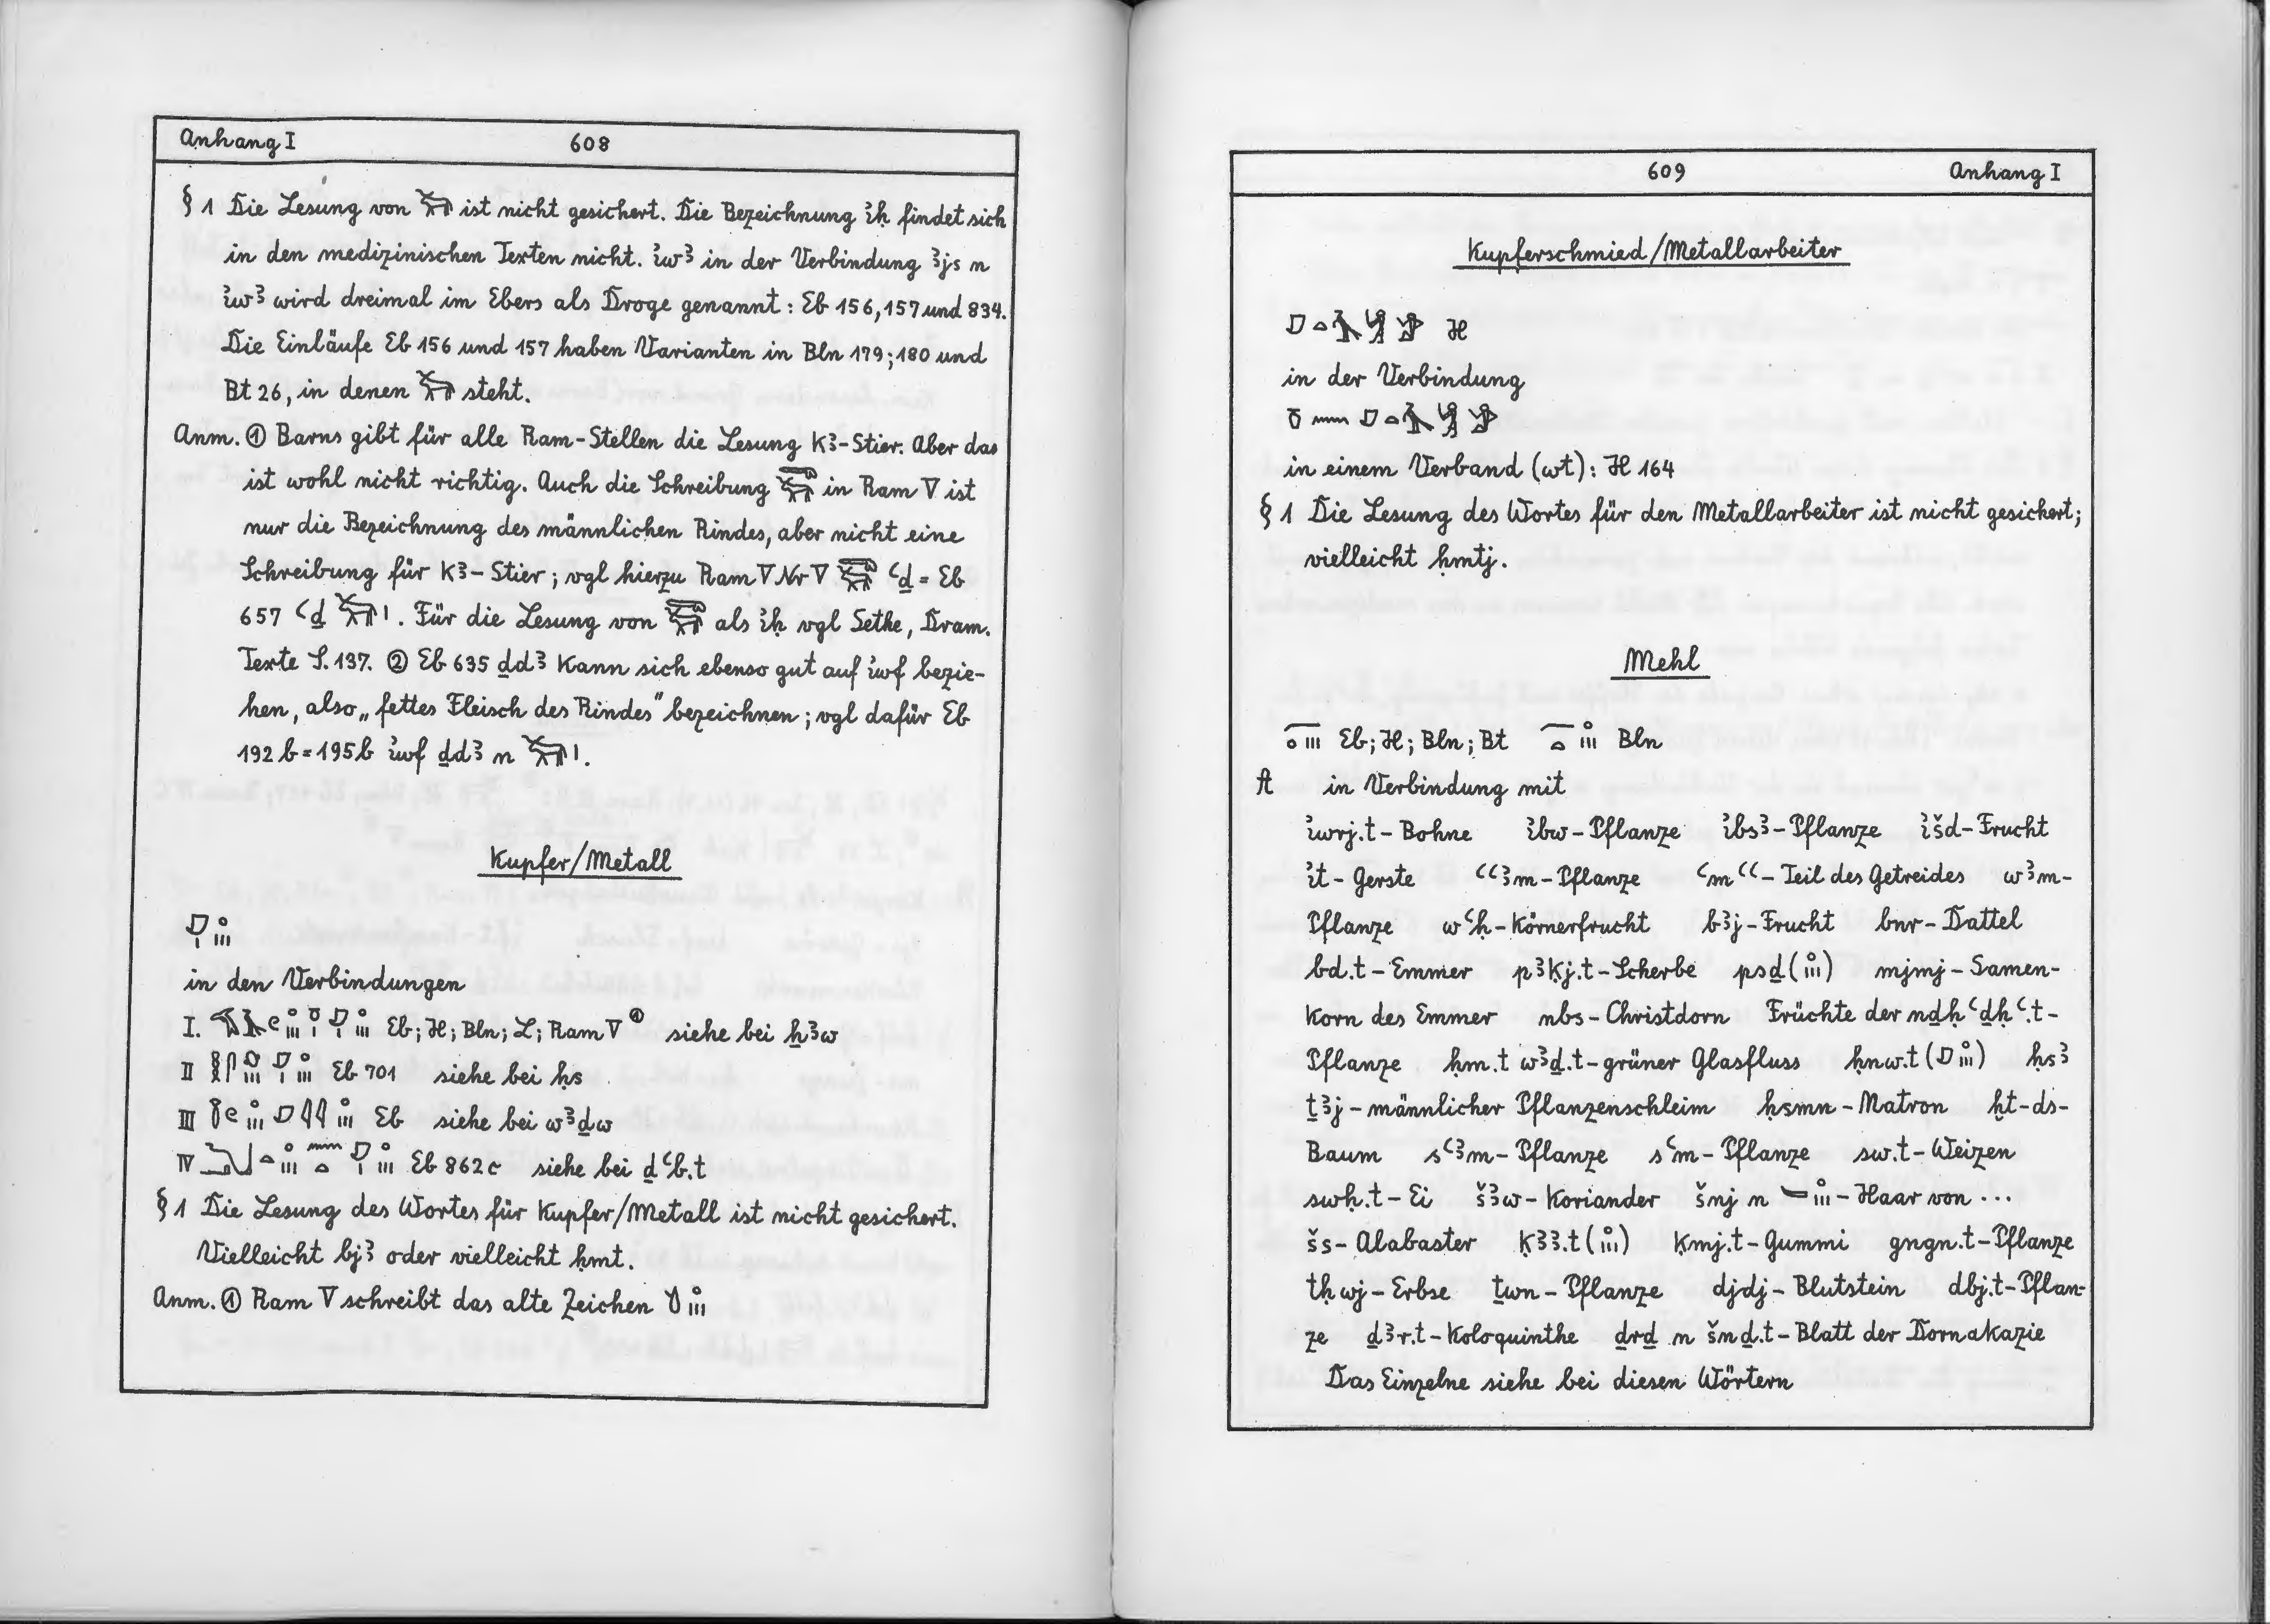 Anhang I 608
§ 1 Die Lesung von 𓃾 ist nicht gesichert. Die Bezeichnung ı͗ḥ findet sich
in den medizinischen Texten nicht. ı͗wꜣ in der Verbindung ꜣjs n
ı͗wꜣ wird dreimal im Ebers als Droge genannt: Eb 156, 157 und 834.
Die Einläufe Eb 156 und 157 haben Varianten in Bln 179; 180 und
Bt 26, in denen steht.
Anm. ① Barns gibt für alle Ram-Stellen die Lesung kꜣ-Stier. Aber das
ist wohl nicht richtig. Auch die Schreibung in Ram V ist
nur die Bezeichnung des männlichen Rindes, aber nicht eine
Schreibung für kꜣ-Stier; vgl hierzu Ram V Nr V ꜥḏ = Eb
657 ꜥḏ . Für die Lesung von als ı͗ḥ vgl Sethe, Dram.
Texte S. 137. ② Eb 635 ḏdꜣ kann sich ebenso gut auf ı͗wf bezie-
hen, also „fettes Fleisch des Rindes" bezeichnen; vgl dafür Eb
192 b = 195 b ı͗wf ḏdꜣ n .
Kupfer/Metall
in den Verbindungen
I. Eb; H; Bln; L; Ram V ① siehe bei ẖꜣw
II Eb 701 siehe bei ḥs
III Eb siehe bei wꜣḏw
IV Eb 862 c siehe bei ḏꜥb.t
§ 1 Die Lesung des Wortes für Kupfer/Metall ist nicht gesichert.
Vielleicht bjꜣ oder vielleicht ḥmt.
Anm. ① Ram V schreibt das alte Zeichen
609 Anhang I
Kupferschmied/Metallarbeiter
H
in der Verbindung
in einem Verband (wt): H 164
§ 1 Die Lesung des Wortes für den Metallarbeiter ist nicht gesichert;
vielleicht ḥmtj.
Mehl
Eb; H; Bln; Bt Bln
A in Verbindung mit
ı͗wrj.t - Bohne ı͗bw - Pflanze ı͗bsꜣ - Pflanze ı͗šd - Frucht
ı͗t - Gerste ꜥꜥꜣm - Pflanze ꜥmꜥꜥ - Teil des Getreides wꜣm-
Pflanze wꜥḥ - Körnerfrucht bꜣj - Frucht bnr - Dattel
bd.t - Emmer pꜣḳj.t - Scherbe psḏ ( ) mjmj - Samen-
korn des Emmer nbs - Christdorn Früchte der nḏḥꜥḏḥꜥ.t-
Pflanze ḥm.t wꜣḏ.t - grüner Glasfluss ḥnw.t ( ) ḥsꜣ
ṯꜣj - männlicher Pflanzenschleim ḥsmn - Natron ḫt-ds-
Baum sꜥꜣm - Pflanze sꜥm - Pflanze sw.t - Weizen
swḥ.t - Ei šꜣw - Koriander šnj n - Haar von ...
šs - Alabaster ḳꜣꜣ.t ( ) ḳmj.t - Gummi gngn.t - Pflanze
tḥwj - Erbse ṯwn - Pflanze djdj - Blutstein dbj.t - Pflan-
ze ḏꜣr.t - Koloquinthe ḏrḏ n šnḏ.t - Blatt der Dornakazie
Das Einzelne siehe bei diesen Wörtern